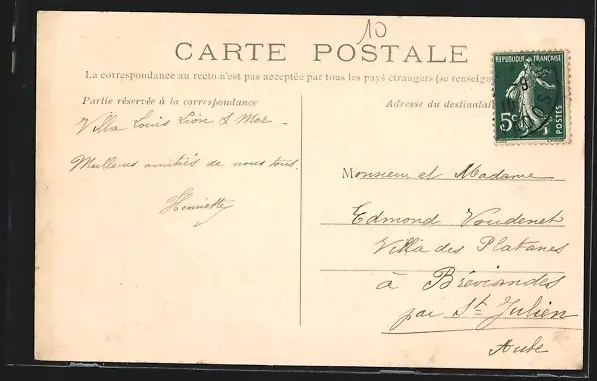 10
CARTE POSTALE
La correspondance au recto n'est pas acceptée par tous les pays étrangers (se renseign
Partie réservée à la correspondance
Adresse du destinatai
RÉPUBLIQUE FRANÇAISE
5c
POSTES
Villa Louis Lion s Mer -
Meilleures amitiés de nous tous.
Henriette
Monsieur et Madame
Edmond Voudenet
Villa des Platanes
à Bréviandes
par St Julien
Aube